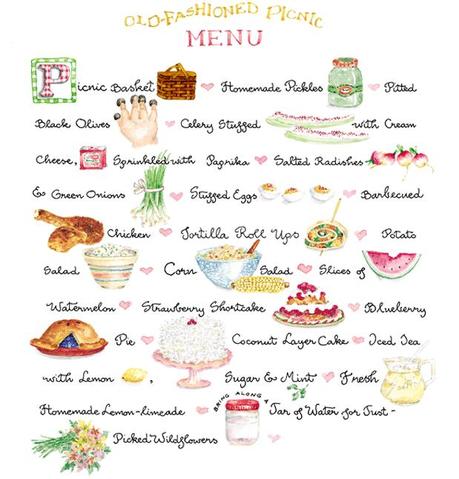 OLD-FASHIONED PICNIC
MENU
Picnic Basket Homemade Pickles Pitted
Black Olives Celery Stuffed with Cream
Cheese, Sprinkled with Paprika Salted Radishes
& Green Onions Stuffed Eggs Barbecued
Chicken Tortilla Roll Ups Potato
Salad Corn Salad Slices of
Watermelon Strawberry Shortcake Blueberry
Pie Coconut Layer Cake Iced Tea
with Lemon, Sugar & Mint Fresh
Homemade Lemon-limeade BRING ALONG A Jar of Water for Just-
Picked Wildflowers